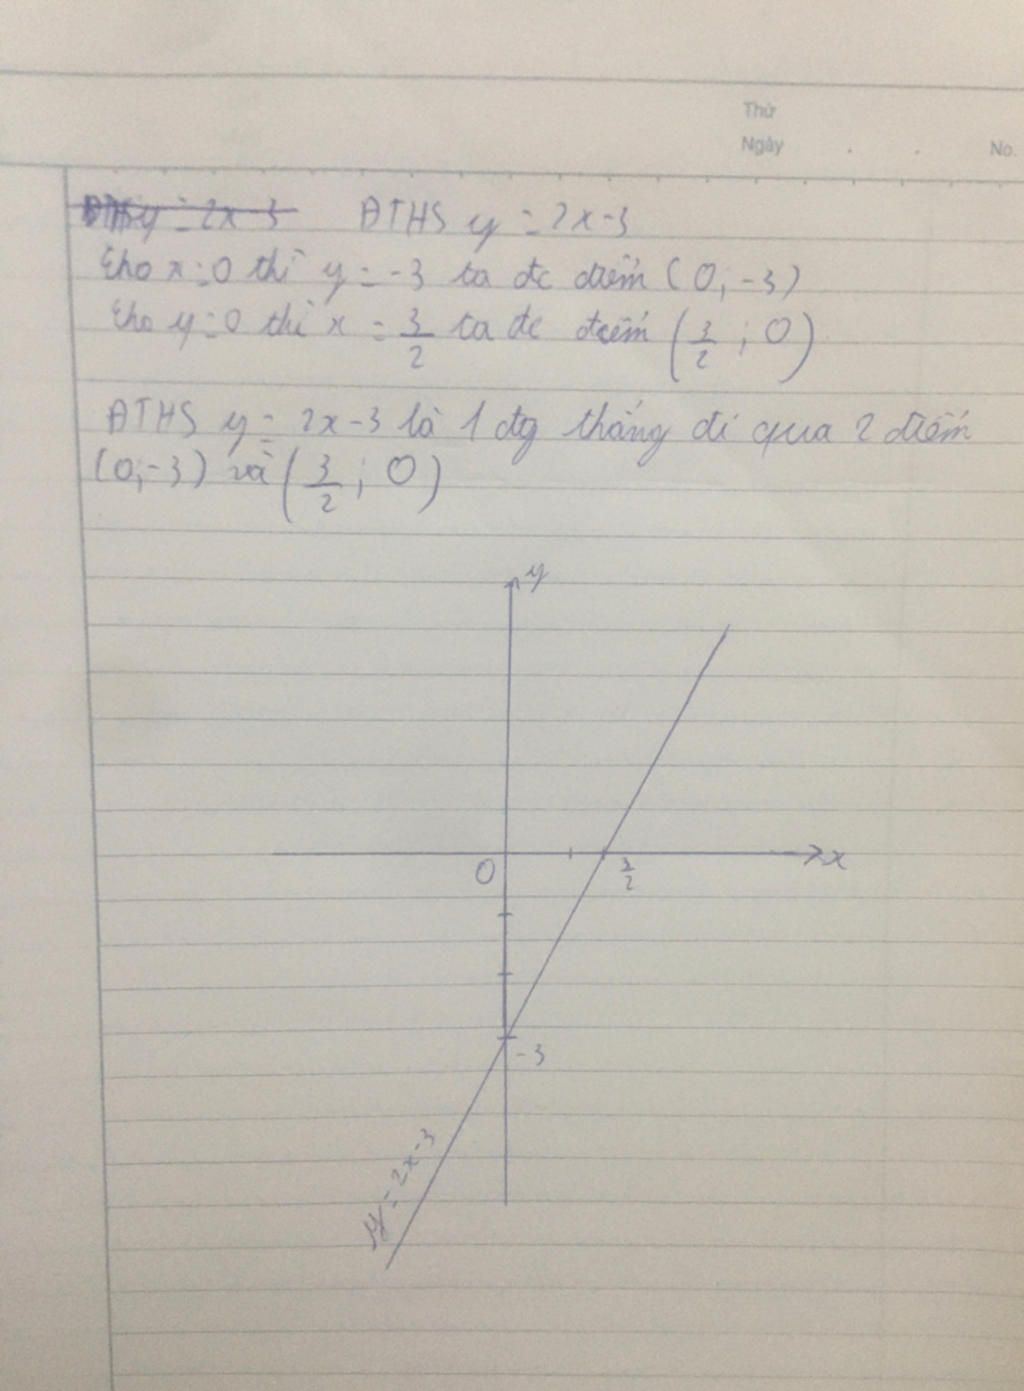 Thứ
Ngày . . No.
ĐTHS y = 2x-3 ĐTHS y = 2x-3
Cho x=0 thì y = -3 ta đc điểm (0; -3)
Cho y=0 thì x = 3/2 ta đc điểm (3/2 ; 0)
ĐTHS y = 2x-3 là 1 đg thẳng đi qua 2 điểm
(0;-3) và (3/2 ; 0)
y
O 3/2 x
-3
y = 2x-3